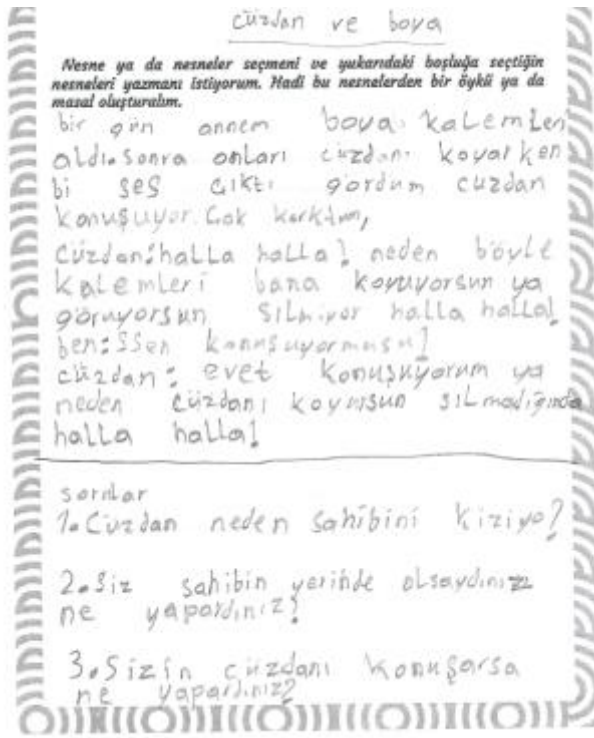 cüzdan ve boya
Nesne ya da nesneler seçmeni ve yukarıdaki boşluğa seçtiğin
nesneleri yazmanı istiyorum. Hadi bu nesnelerden bir öykü ya da
masal oluşturalım.
bir gün annem boya kalemleri
aldı. Sonra onları cüzdanı koyarken
bi ses çıktı gördüm cüzdan
konuşuyor. Çok korktum,
Cüzdan: halla halla! neden böyle
kalemleri bana koyuyorsun ya
görüyorsun silmiyor halla halla!
ben: SSen konuşuyormusun?
cüzdan: evet konuşuyorum ya
neden cüzdanı koyuısun silmadığında
halla halla!
sorular
1. Cüzdan neden sahibini kiziyo?
2. Siz sahibin yerinde olsaydınız
ne yapardınız?
3. Sizin cüzdanı konuşarsa
ne yapardınız?